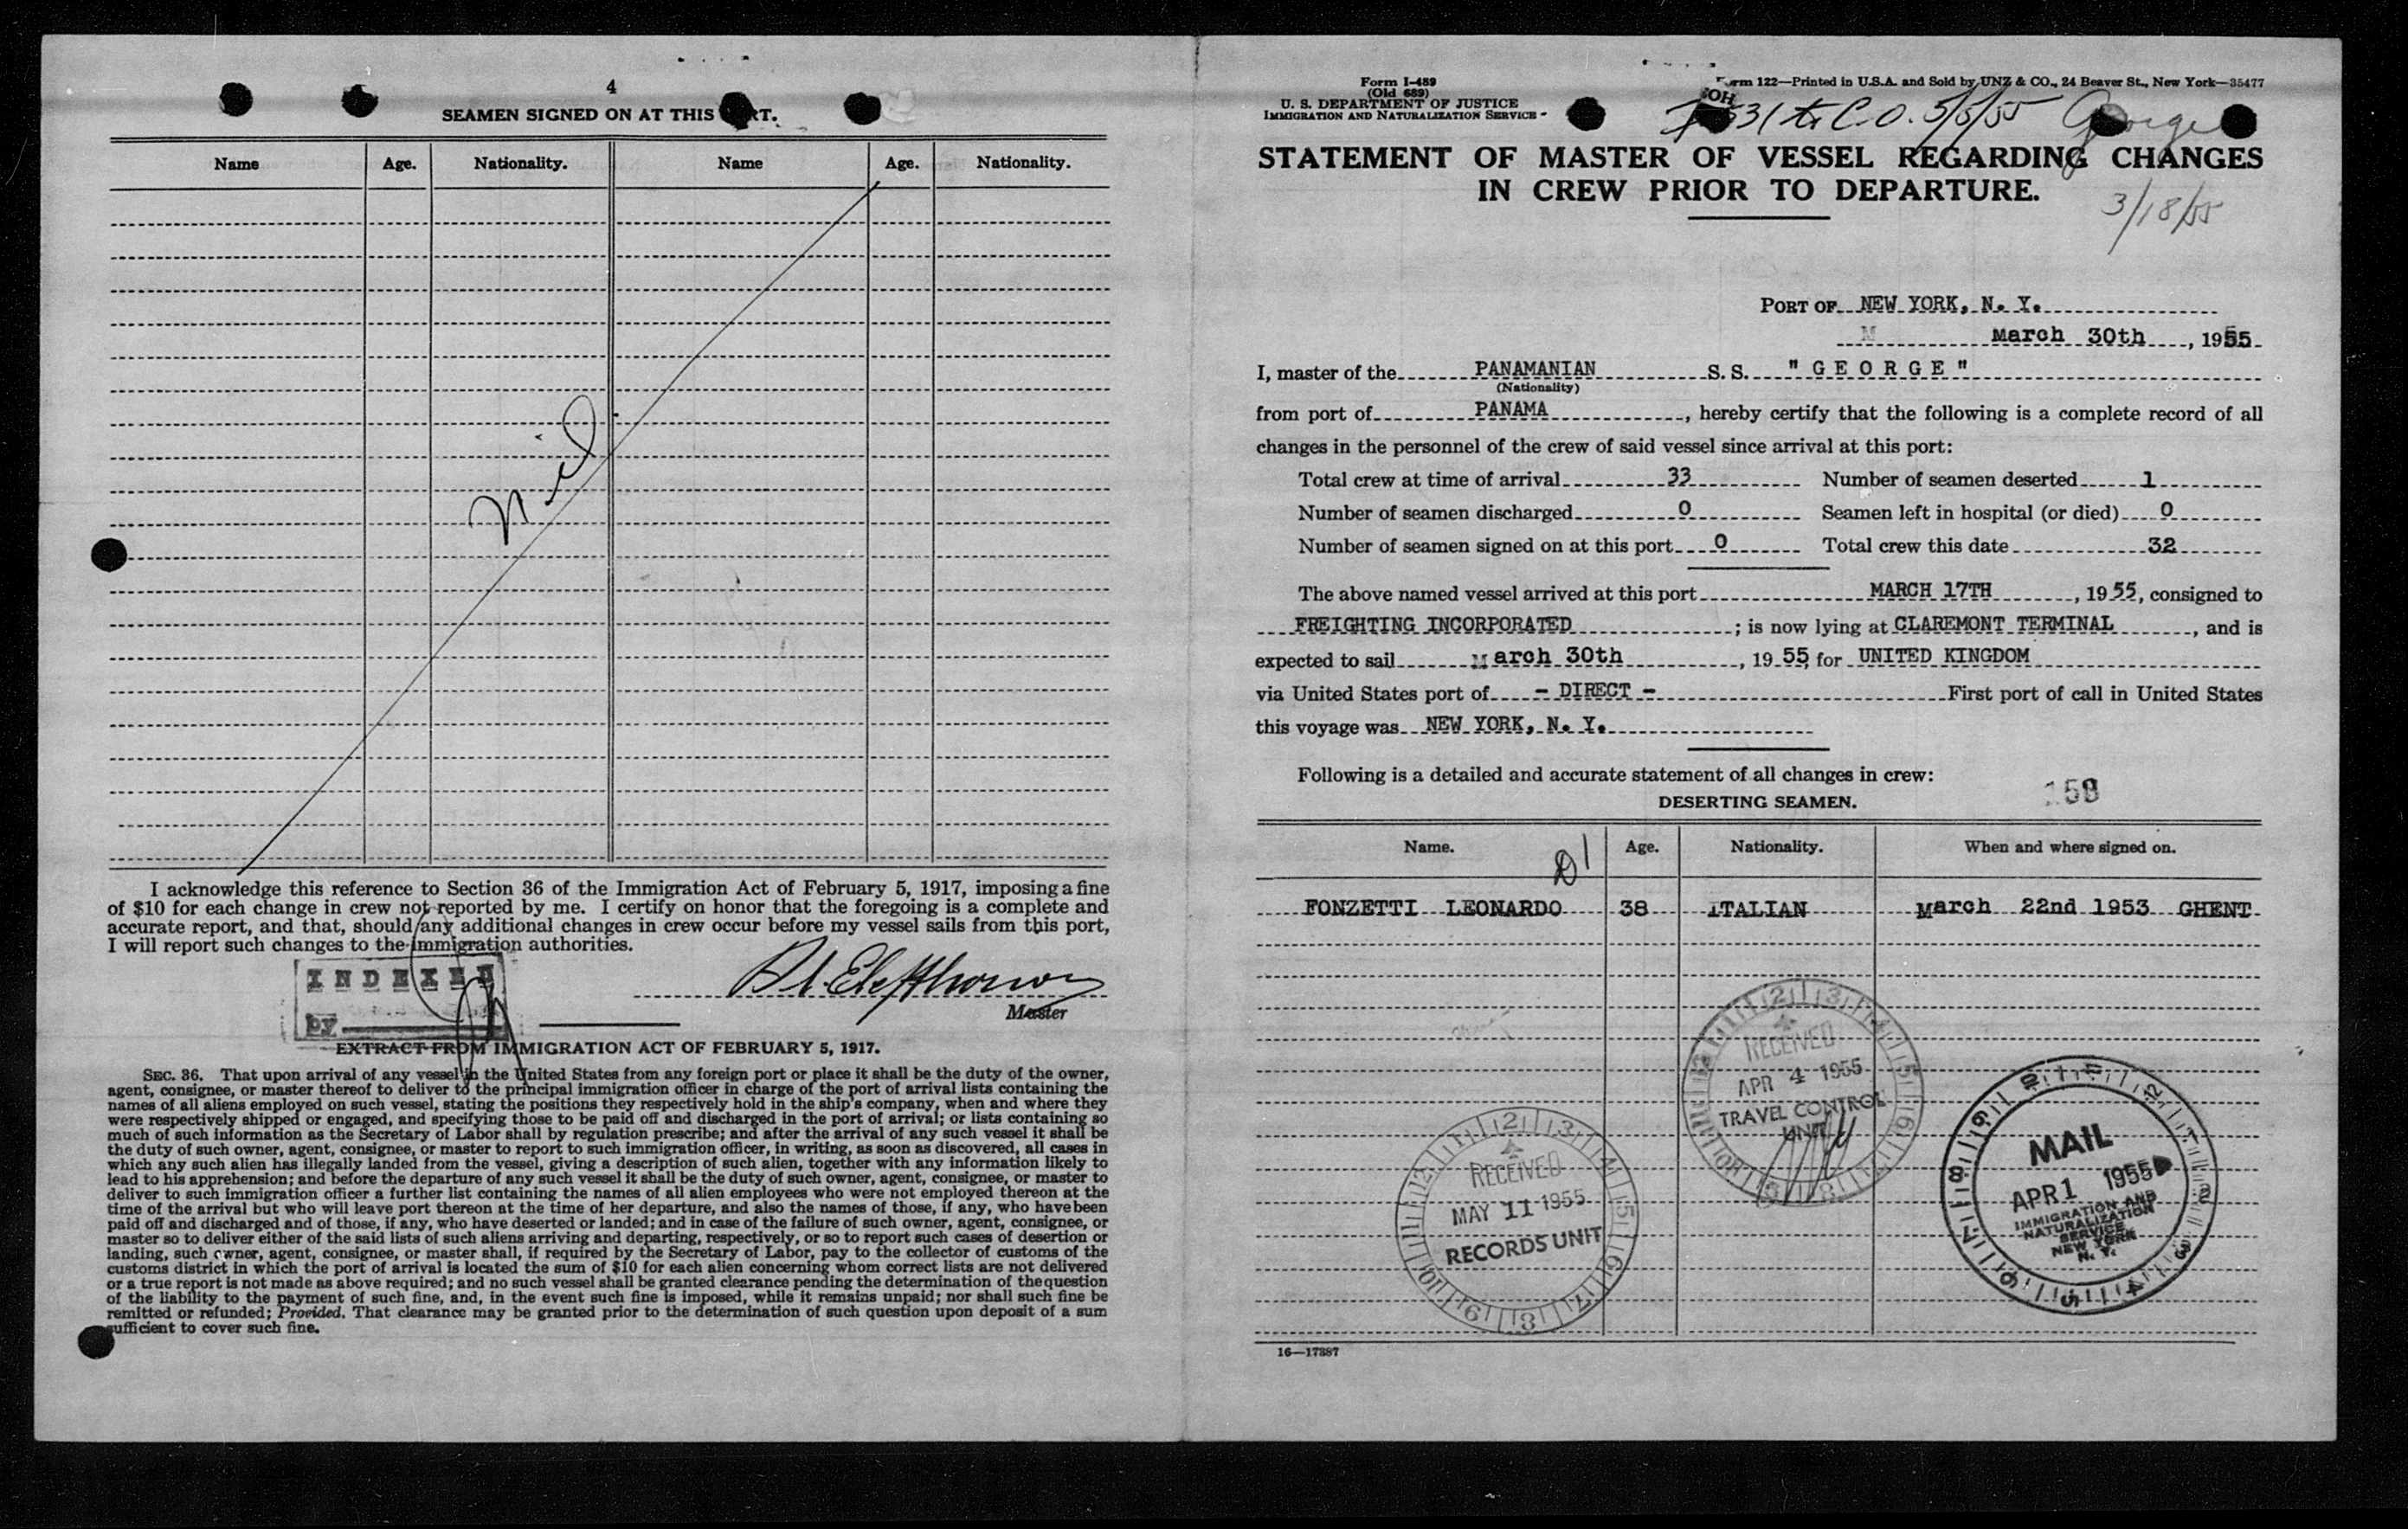 4
SEAMEN SIGNED ON AT THIS
Name Age. Nationality. Name Age. Nationality.
Nil
I acknowledge this reference to Section 36 of the Immigration Act of February 5, 1917, imposing a fine
of $10 for each change in crew not reported by me. I certify on honor that the foregoing is a complete and
accurate report, and that, should any additional changes in crew occur before my vessel sails from this port,
I will report such changes to the immigration authorities.
INDEXED
by
Master
EXTRACT FROM IMMIGRATION ACT OF FEBRUARY 5, 1917.
SEC. 36. That upon arrival of any vessel in the United States from any foreign port or place it shall be the duty of the owner,
agent, consignee, or master thereof to deliver to the principal immigration officer in charge of the port of arrival lists containing the
names of all aliens employed on such vessel, stating the positions they respectively hold in the ship's company, when and where they
were respectively shipped or engaged, and specifying those to be paid off and discharged in the port of arrival; or lists containing so
much of such information as the Secretary of Labor shall by regulation prescribe; and after the arrival of any such vessel it shall be
the duty of such owner, agent, consignee, or master to report to such immigration officer, in writing, as soon as discovered, all cases in
which any such alien has illegally landed from the vessel, giving a description of such alien, together with any information likely to
lead to his apprehension; and before the departure of any such vessel it shall be the duty of such owner, agent, consignee, or master to
deliver to such immigration officer a further list containing the names of all alien employees who were not employed thereon at the
time of the arrival but who will leave port thereon at the time of her departure, and also the names of those, if any, who have been
paid off and discharged and of those, if any, who have deserted or landed; and in case of the failure of such owner, agent, consignee, or
master so to deliver either of the said lists of such aliens arriving and departing, respectively, or so to report such cases of desertion or
landing, such owner, agent, consignee, or master shall, if required by the Secretary of Labor, pay to the collector of customs of the
customs district in which the port of arrival is located the sum of $10 for each alien concerning whom correct lists are not delivered
or a true report is not made as above required; and no such vessel shall be granted clearance pending the determination of the question
of the liability to the payment of such fine, and, in the event such fine is imposed, while it remains unpaid; nor shall such fine be
remitted or refunded; Provided, That clearance may be granted prior to the determination of such question upon deposit of a sum
sufficient to cover such fine.
Form I-489
(Old 689)
U. S. DEPARTMENT OF JUSTICE
IMMIGRATION AND NATURALIZATION SERVICE
Form 122—Printed in U.S.A. and Sold by UNZ & CO., 24 Beaver St., New York—35477
31 to C.O. 5/5/55 George
STATEMENT OF MASTER OF VESSEL REGARDING CHANGES
IN CREW PRIOR TO DEPARTURE.
3/18/55
PORT OF NEW YORK, N. Y.
March 30th, 1955
I, master of the PANAMANIAN S. S. "GEORGE"
(Nationality)
from port of PANAMA, hereby certify that the following is a complete record of all
changes in the personnel of the crew of said vessel since arrival at this port:
Total crew at time of arrival 33 Number of seamen deserted 1
Number of seamen discharged 0 Seamen left in hospital (or died) 0
Number of seamen signed on at this port 0 Total crew this date 32
The above named vessel arrived at this port MARCH 17TH, 1955, consigned to
FREIGHTING INCORPORATED; is now lying at CLAREMONT TERMINAL, and is
expected to sail March 30th, 1955 for UNITED KINGDOM
via United States port of - DIRECT - First port of call in United States
this voyage was NEW YORK, N. Y.
Following is a detailed and accurate statement of all changes in crew:
159
DESERTING SEAMEN.
Name. Age. Nationality. When and where signed on.
D1
FONZETTI LEONARDO 38 ITALIAN March 22nd 1953 GHENT
RECEIVED
APR 4 1955
TRAVEL CONTROL
UNIT
RECEIVED
MAY 11 1955
RECORDS UNIT
MAIL
APR 1 1955
IMMIGRATION AND
NATURALIZATION
SERVICE
NEW YORK
N. Y.
16—17387